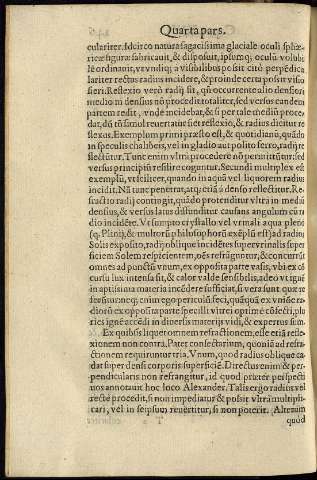 Quarta pars.
culariter. Idcirco natura sagacissima glaciale oculi sphæ-
ricæ figuræ fabricauit, & disposuit, ipsumq; oculū volubi
lē ordinauit, vt vndiq; a visibilibus possit citò perpēdicu
lariter rectus radius incidere, & proinde certa possit visio
fieri. Reflexio verò radij sit, qñ occurrente alio densiori
medio
partem redit, vnde incidebat, & si per tale
dat, dū tñ simul reuertatur fiet reflexio, & radius dicitur re
flexus. Exemplum primi præsto est, & quotidianū, quādo
in speculis chalibeis, vel in gladio aut polito ferro, radij re
flectūtur. Tunc enim vltra procedere nō permittūtur: sed
versus principiū restitire coguntur. Secundi multiplex est
exemplū, vtiliciter, quando in aquā vel liquorem radius
incidit. Nā tunc penetrat, atq; etiā a denso reflectitur. Re-
fractio radij contingit, quādo protenditur vltra in mediū
densius, & versus latus diffunditur causans angulum cū ra
dio incidēte. Vt sumpto crystallo vel vrinali aqua pleno
Solis exposito, radij oblique incidētes super vrinalis super
ficiem Solem respicientem, oēs refrāgūtur, & concurrūt
omnes ad punctū vnum, ex opposita parte vasis, vbi ex cō
cursu lux intensa fit, & calor valde sensibilis, adeo vt ignē
in aptissima materia incēdere sufficiat, si vera sunt quæ re
ferūt: enim ego periculū feci, quāquā ex vniōe ra-
diorū ex opposita parte speculi vitrei optimè cōfecti, plu
ries ignē accēdi in diuersis materijs vidi, & expertus sum.
Ex quibus liquet omnem refractionem, esse etiā refle-
xionem non contra. Patet consectarium, quoniā ad refra-
ctionem requiruntur tria. Vnum, quod radius oblique ca-
dat super densi corporis superficiē. Directus enim & per-
pendicularis non refrangitur, id quod præter perspecti
uos annotauit hoc loco Alexander. Talis ergo radius vel
rectè procedit, si non impediatur & possit vltra multipli-
cari, vel in seipsum reuertitur, si non poterit. Alterum
quod